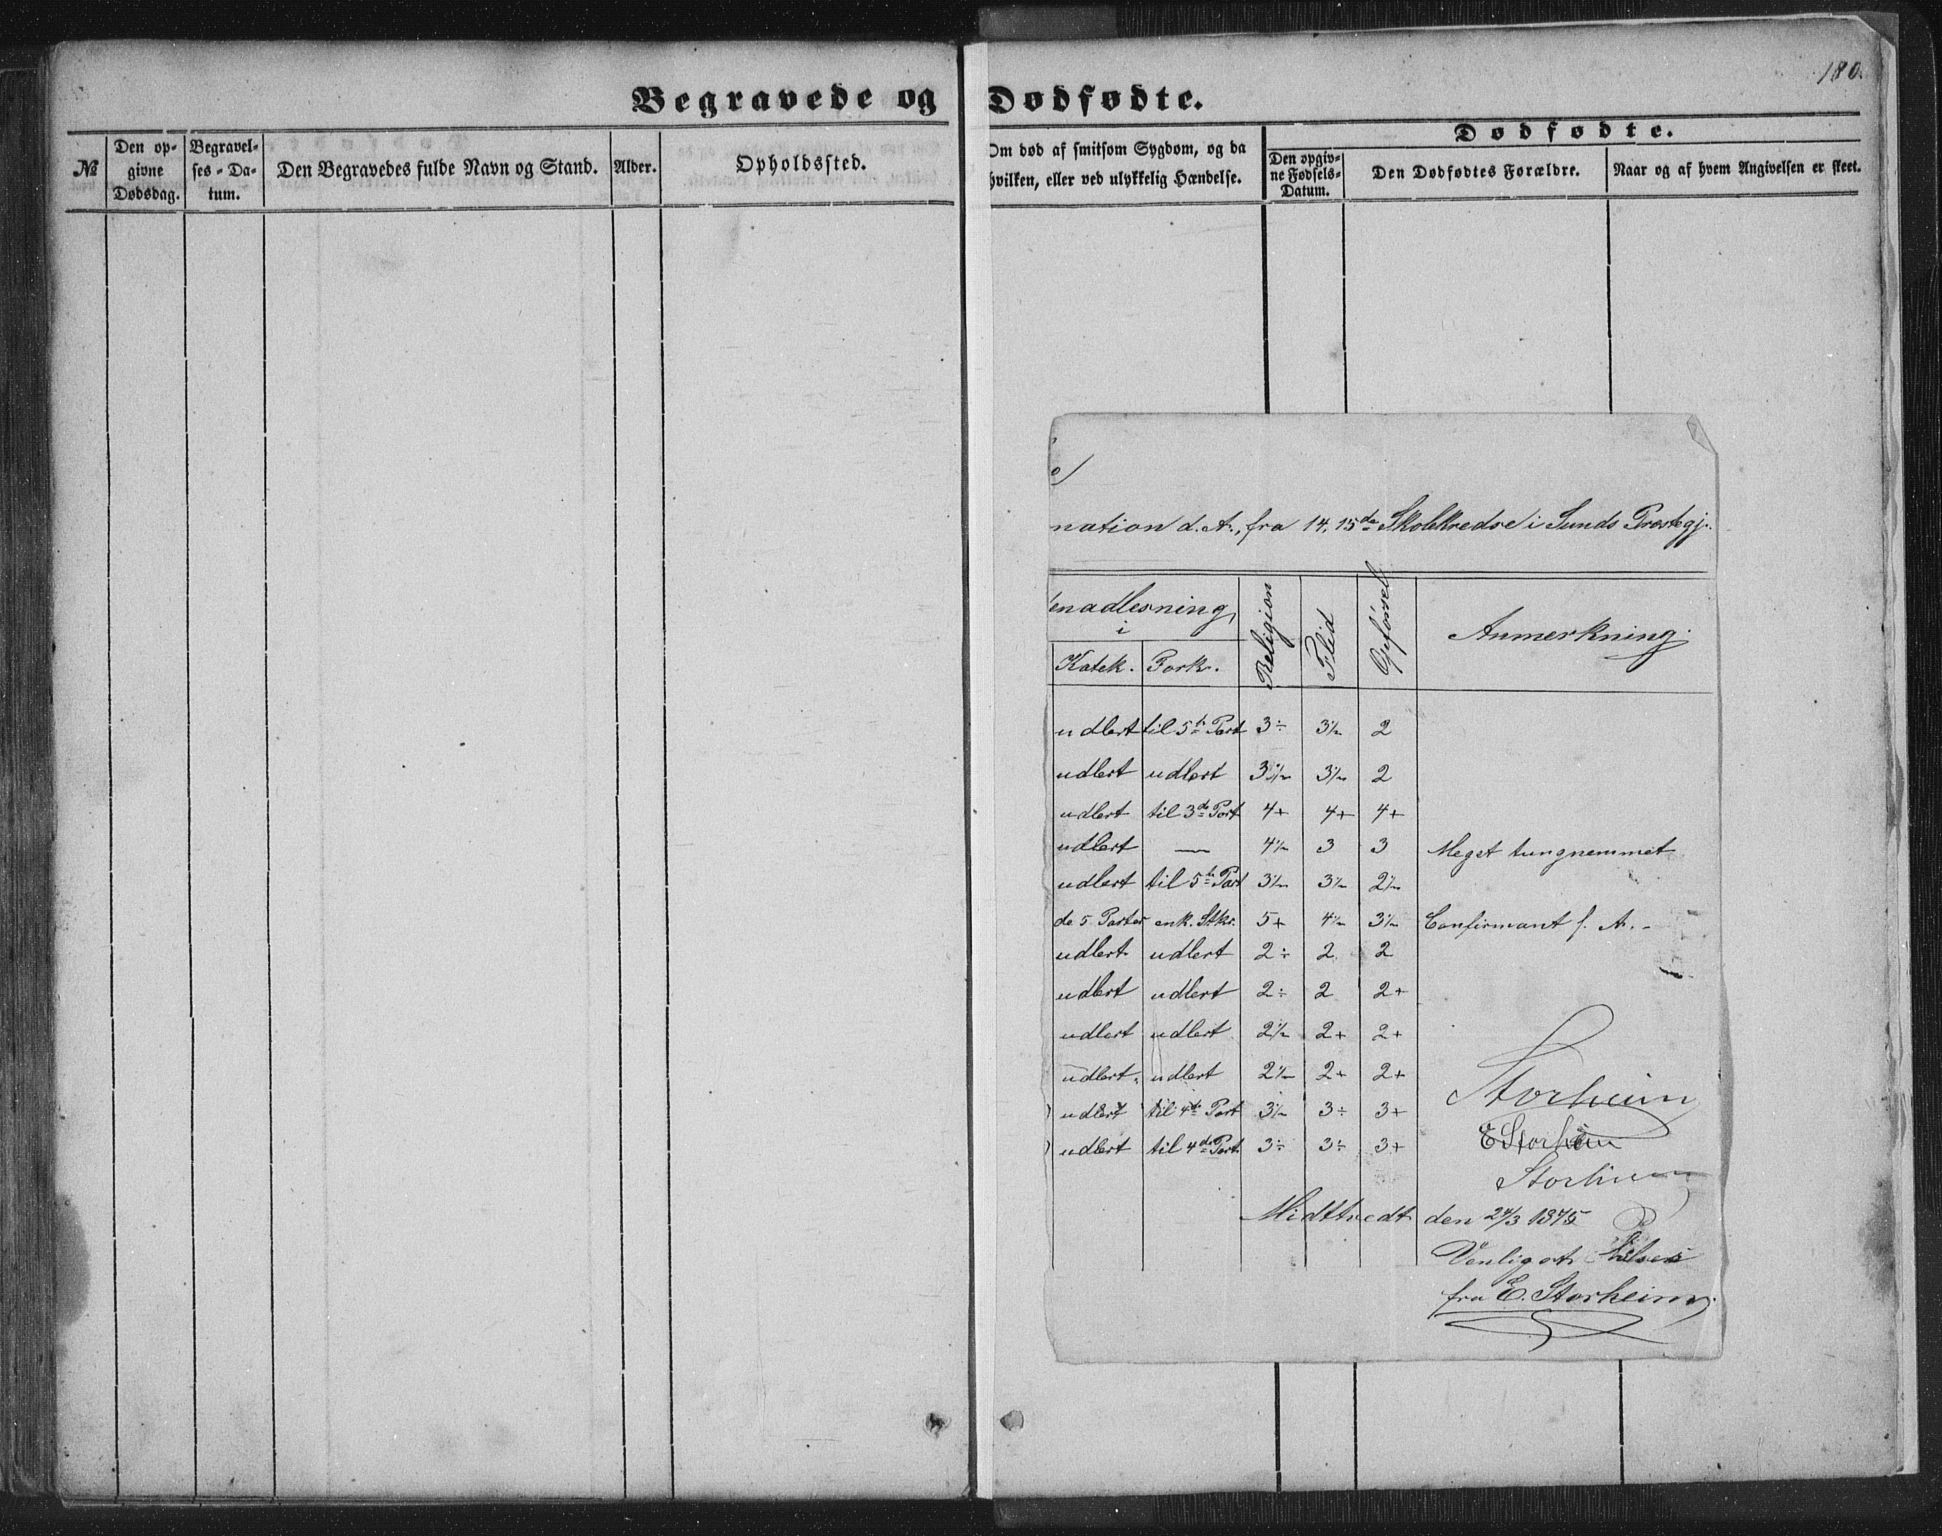 180.
Begravede og Dødfødte.
№
Den opgivne Dødsdag.
Begravelses-Datum.
Den Begravedes fulde Navn og Stand.
Alder.
Opholdssted.
Om død af smitsom Sygdom, og da
hvilken, eller ved ulykkelig Hændelse.
Dødfødte.
Den opgivne Fødsels-Datum.
Den Dødfødtes Forældre.
Naar og af hvem Angivelsen er skeet.
nation d. A., fra 14, 15de Skolekredse i Sunds Præstegj.
enadlesning
i
Katek. Fork. Religion Flid Opførsel Anmerkning.
udlert til 5te Part 3÷ 3½ 2
udlert udlert 3½ 3½ 2
udlert til 3de Part 4+ 4+ 4+
udlert — 4½ 3 3 Meget tungnemmet
udlert til 5te Part 3½ 3½ 2½
de 5 Parter enk. Stkr. 5+ 4½ 3½ Confirmant f. A.-
udlert udlert 2÷ 2 2
udlert udlert 2÷ 2 2+
udlert udlert 2½ 2+ 2+
udlert. udlert 2½ 2+ 2+
udlert til 4de Part 3½ 3÷ 3+
udlert til 4de Part. 3÷ 3÷ 3+
Storheim
E Storheim
Storheim
Midttvedt den 24/3 1875
Venligst Hilsen
fra E. Storheim